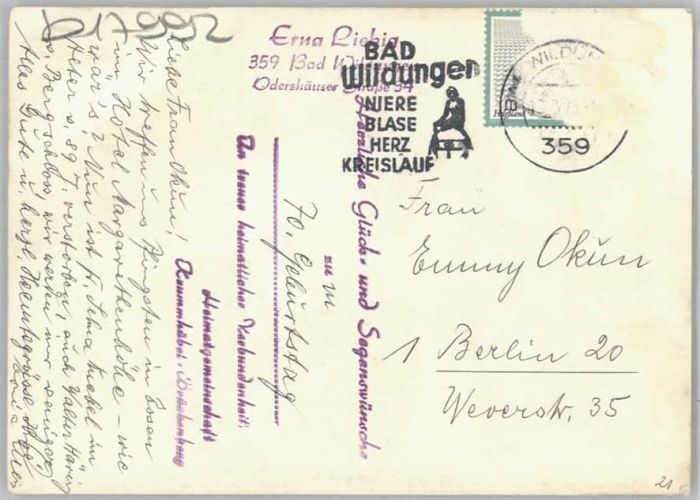 017995
Erna Liebig
359 Bad Wil
Odershäuser Straße 54
BAD
Wildungen
NIERE
BLASE
HERZ
KREISLAUF
359
Herzliche Glück- und Segenswünsche
zum
70. Geburtstag
In treuer heimatlicher Verbundenheit:
Heimatgemeinschaft
Krummhübel-Brückenberg
Liebe Frau Okun!
Wir treffen uns Pfingsten in Essen
im "Hotel Margarethenhöhe" - wie
wär's? Nun ist Fr. Schmiedel im
Alter v. 89 J. verstorben, auch Walter
v. Bergschloss, wir werden immer weniger
Alles Gute u. herzl. Heimatgrüsse, Ihre
Frau
Emmy Okun
1 Berlin 20
Weverstr. 35
21